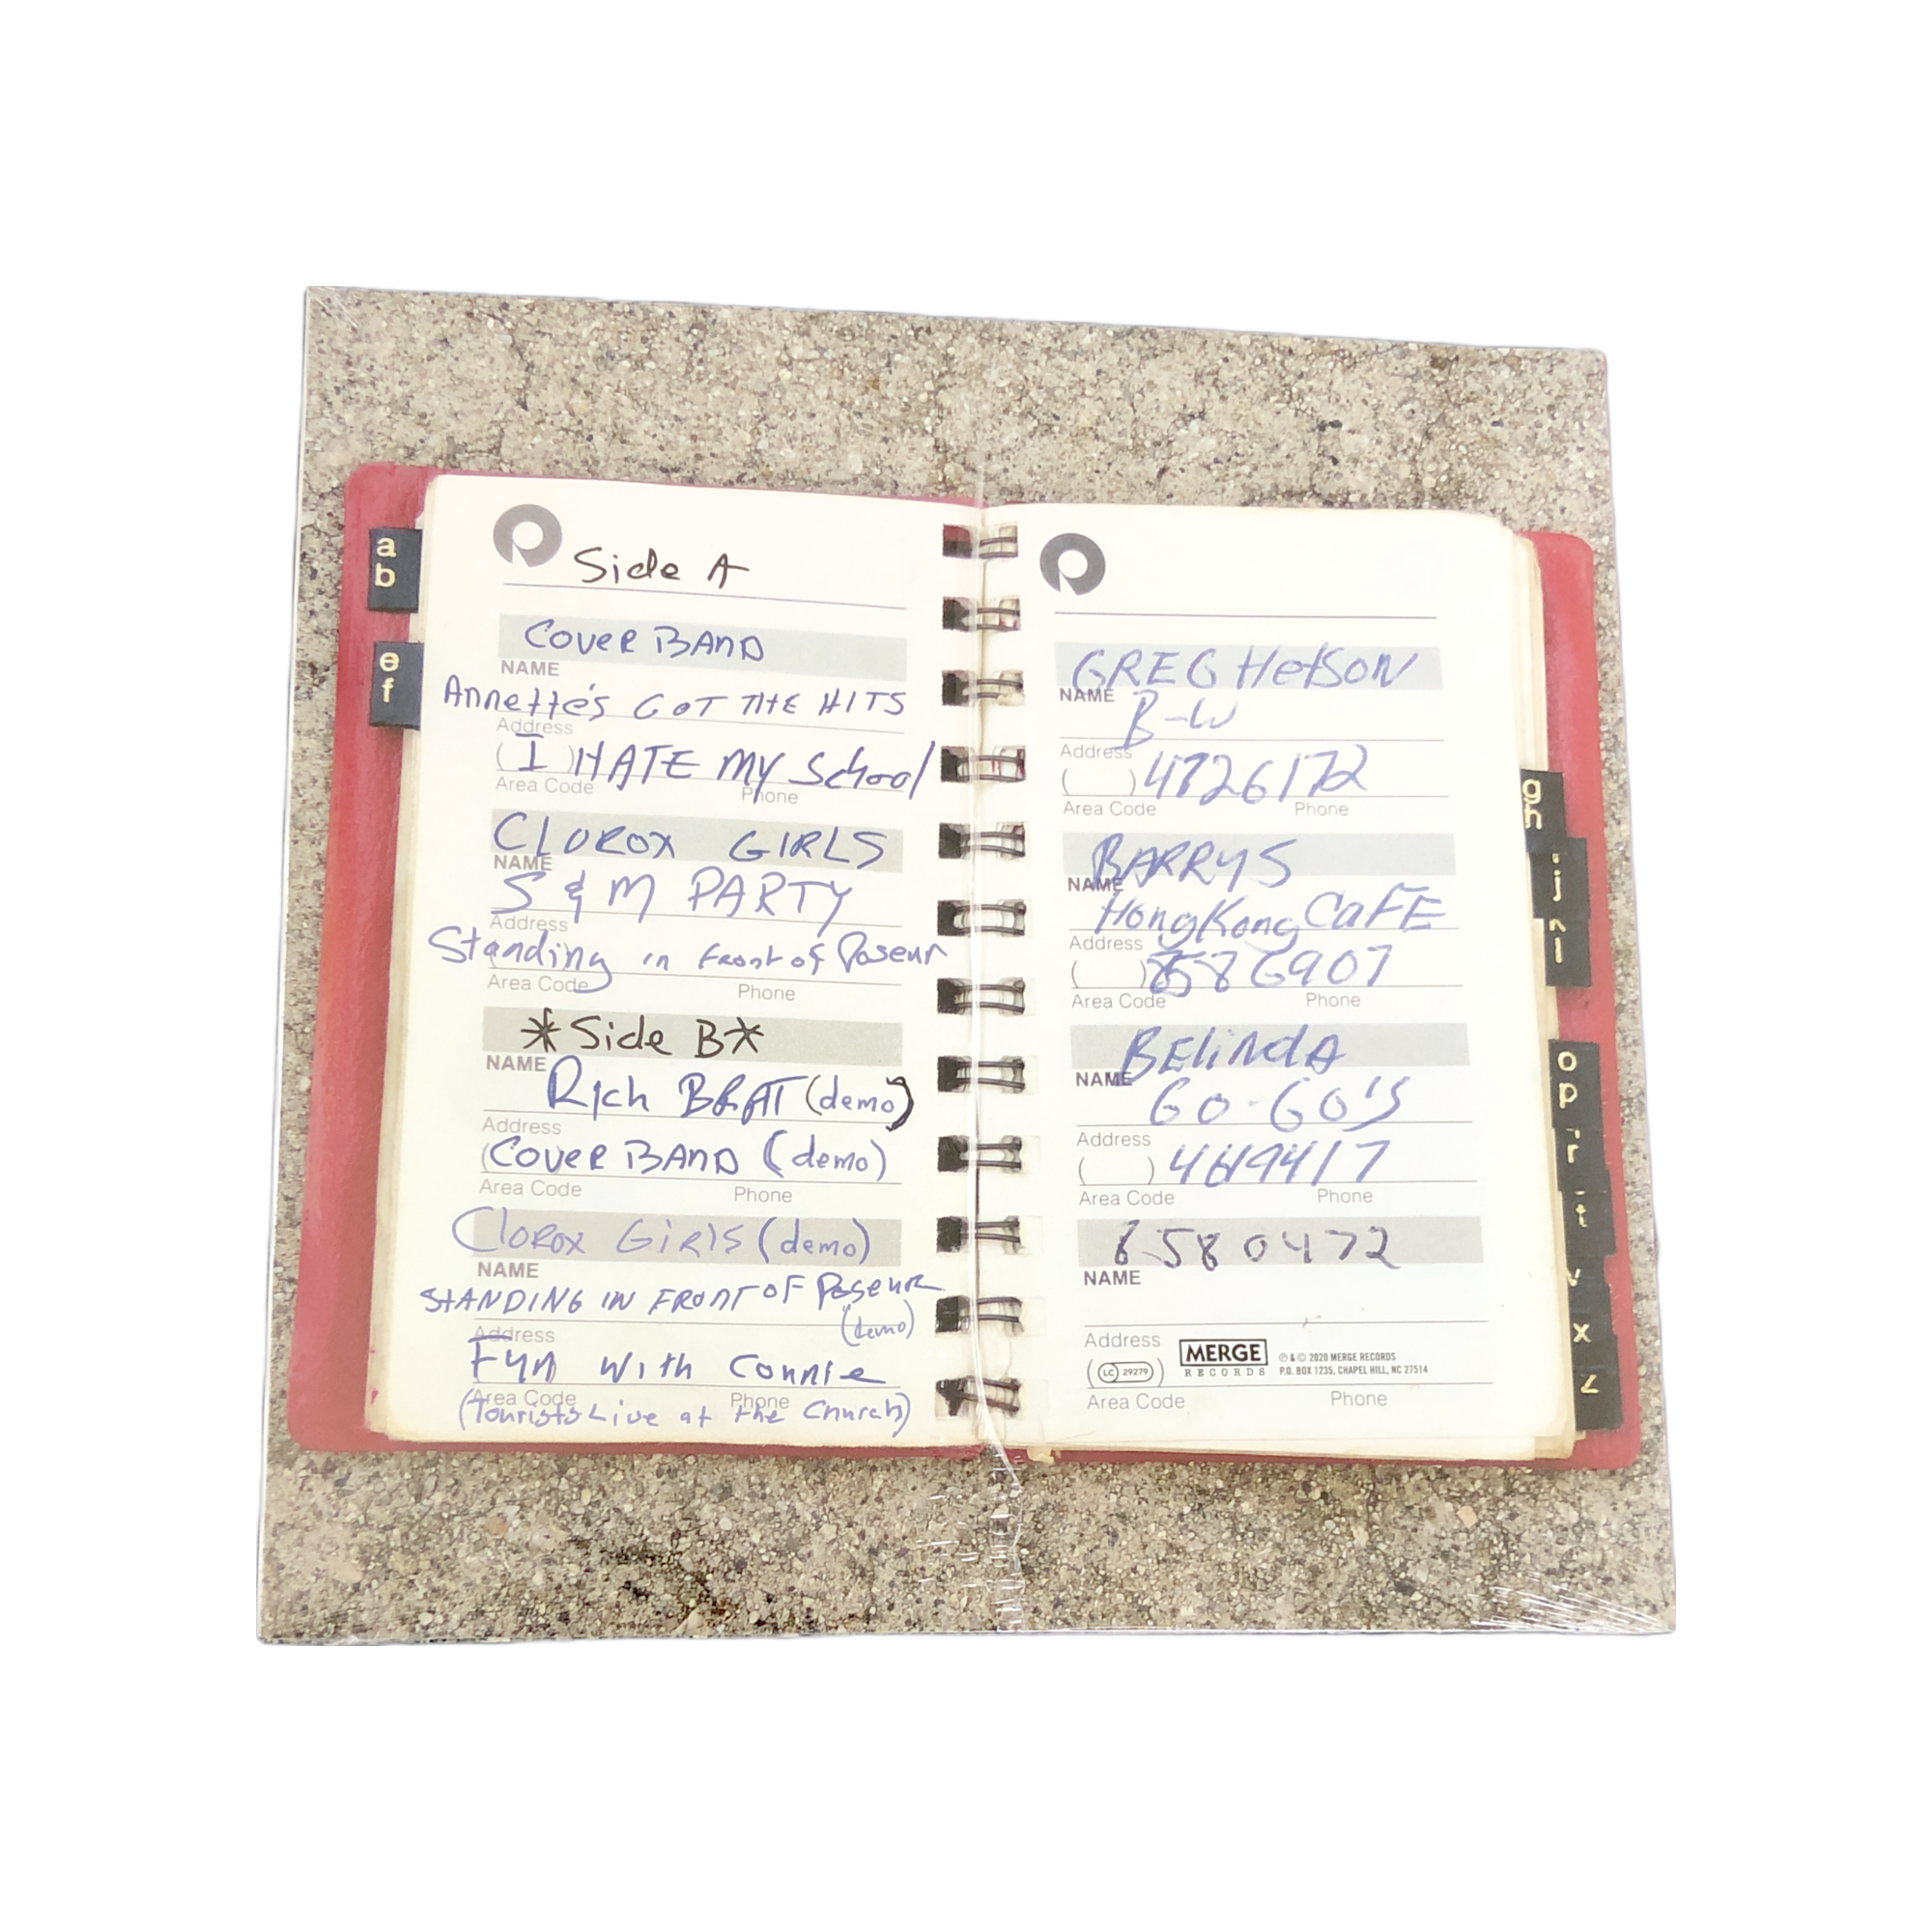 a
b
e
f
Side A
COVER BAND
NAME
Annette's GOT THE HITS
Address
( I ) HATE MY School
Area Code Phone
CLOROX GIRLS
NAME
S & M PARTY
Address
Standing in Front of Poseur
Area Code Phone
*Side B*
NAME
Rich BRAT (demo)
Address
(COVER BAND (demo)
Area Code Phone
Clorox Girls (demo)
NAME
STANDING IN FRONT OF Poseur
(demo)
Address
Fun with Connie
Area Code Phone
(Tourists Live at the Church)
GREG HetSON
NAME
B-W
Address
( ) 4726172
Area Code Phone
BARRYS
NAME
HongKong CaFE
Address
( ) 6907
Area Code Phone
BELindA
NAME
GO-GO'S
Address
( )
Area Code Phone
6580472
NAME
Address
(LC 29279) MERGE RECORDS ℗ & © 2020 MERGE RECORDS
P.O. BOX 1235, CHAPEL HILL, NC 27514
Area Code Phone
g
h
j
l
o
p
r
t
v
x
z